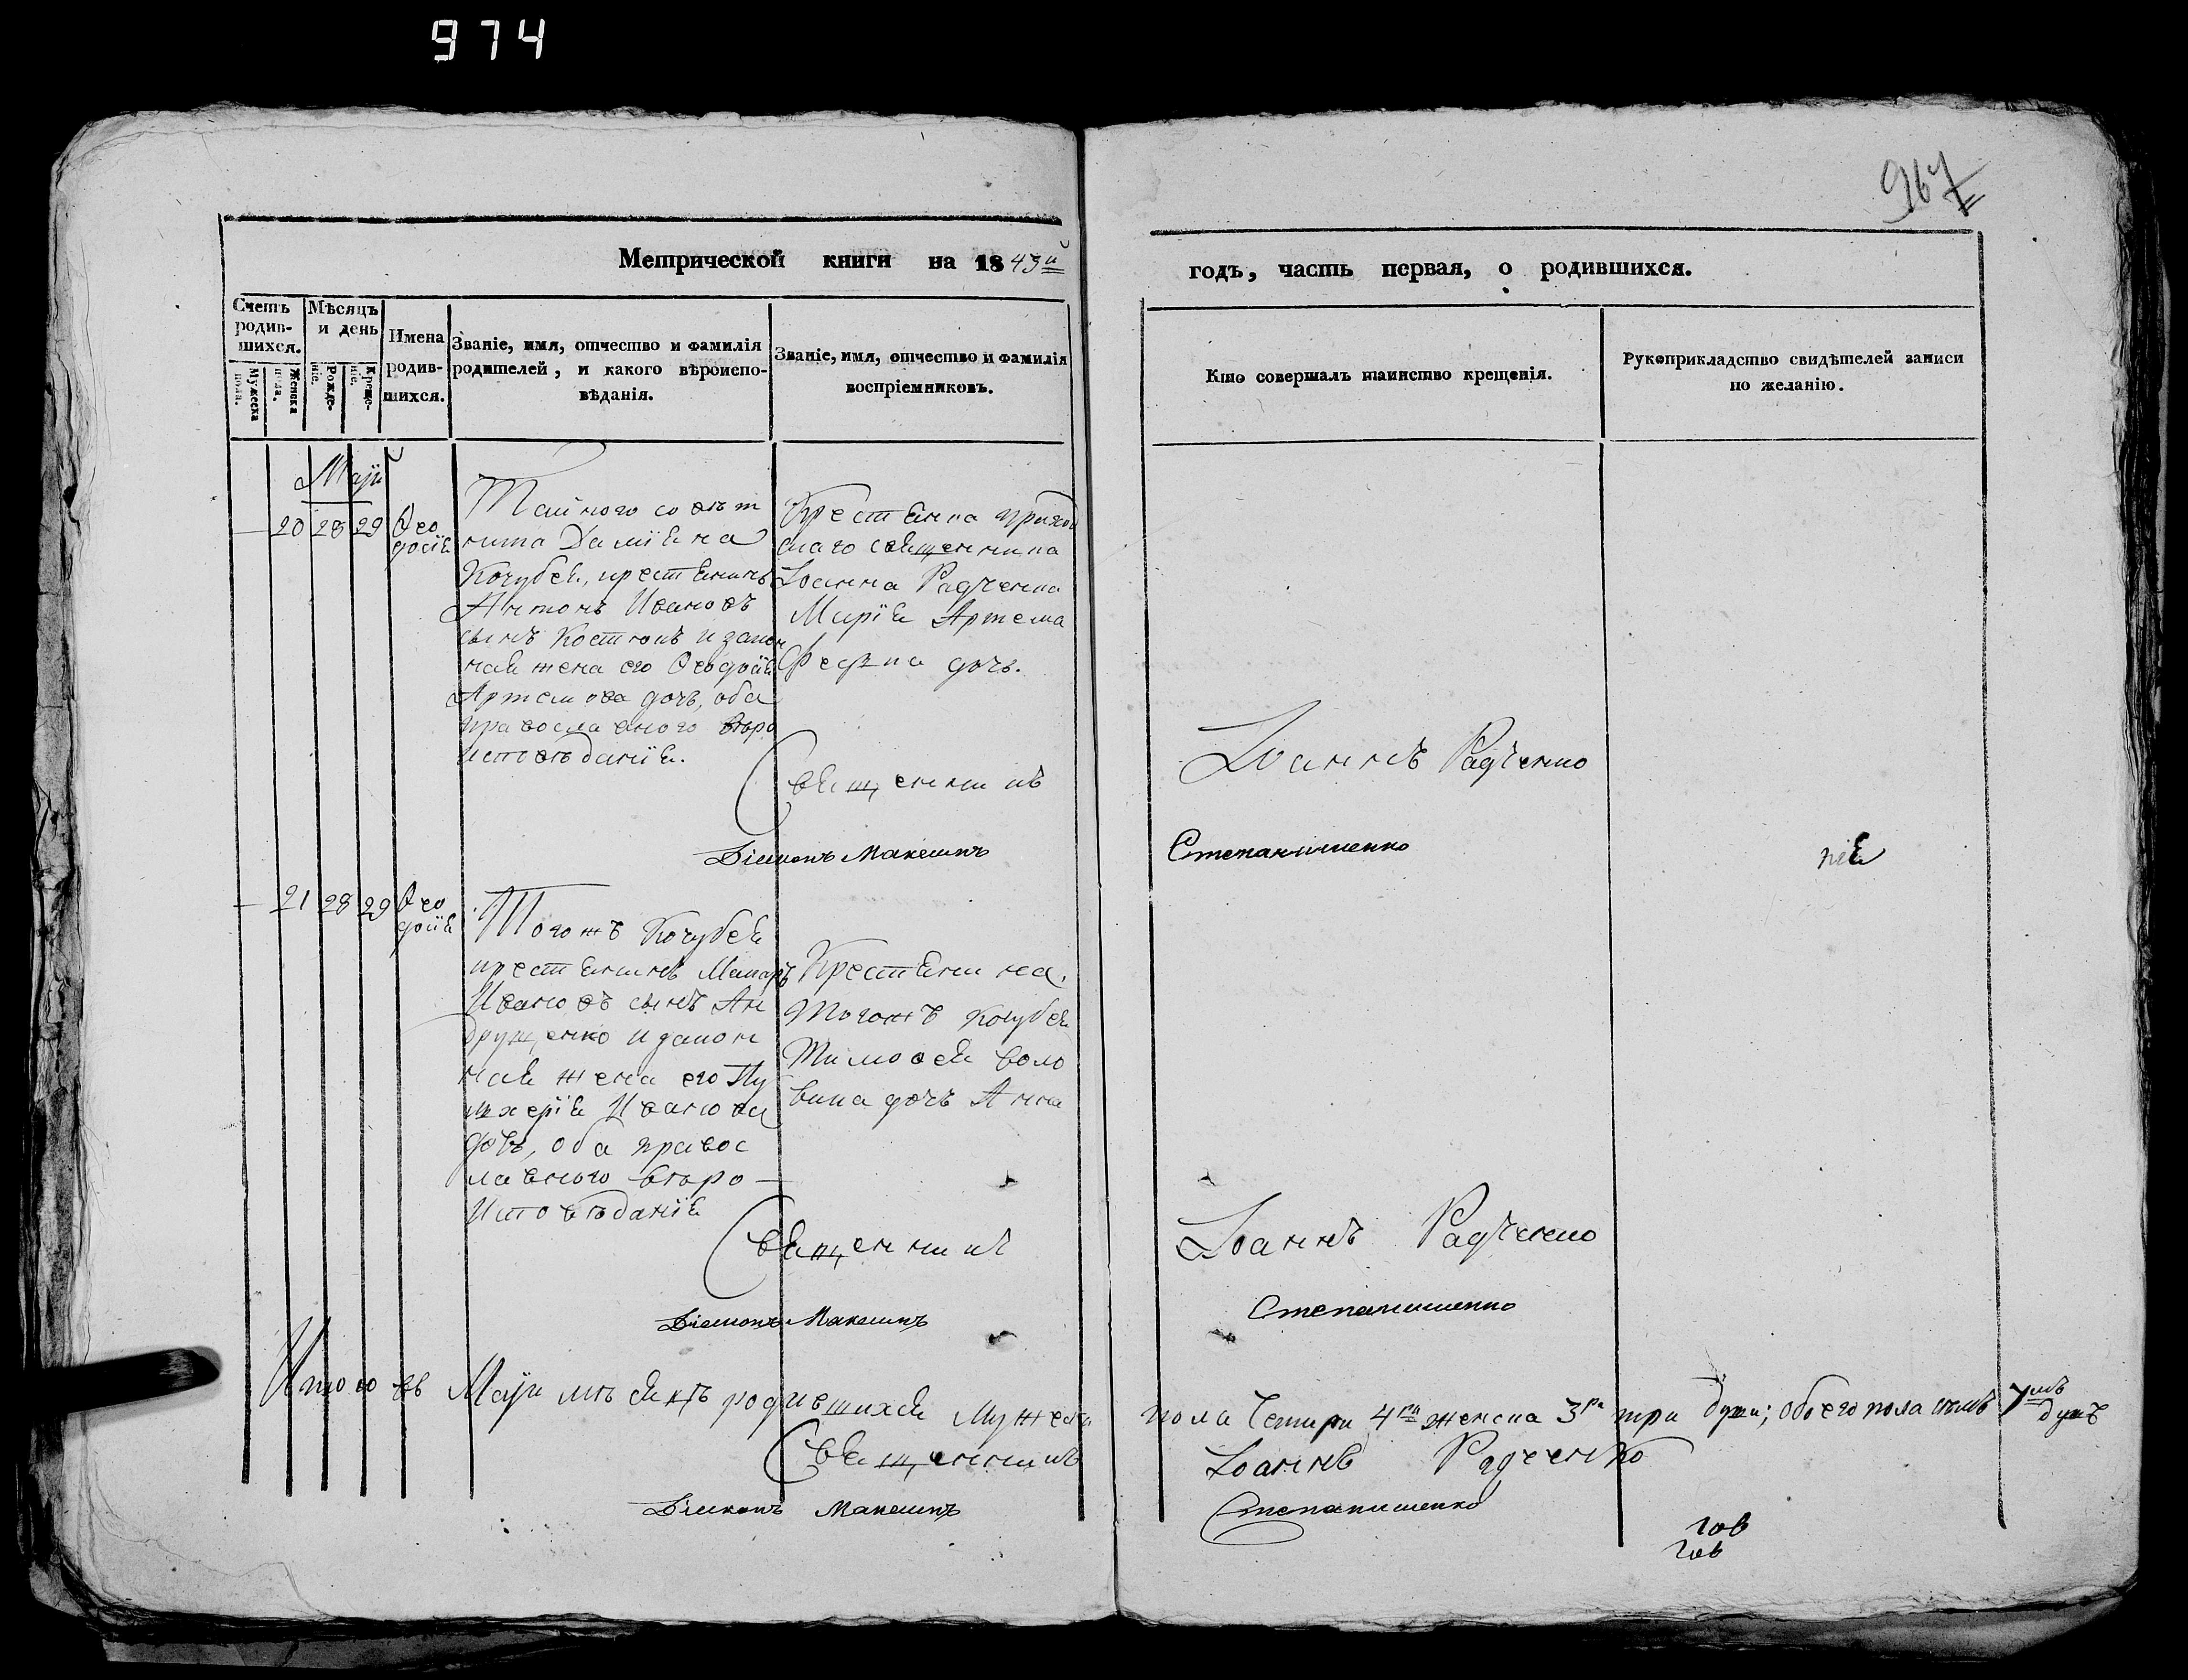 974
967
Метрической книги на 1843й
годъ, часть первая, о родившихся.
Счетъ родив-шихся.
Мужеска пола.
Женска пола.
Мѣсяцъ и день
Рожде-нія.
Креще-нія.
Имена родив-шихся.
Званіе, имя, отчество и фамилія
родителей, и какого вѣроиспо-
вѣданія.
Званіе, имя, отчество и фамилія
воспріемниковъ.
Кто совершалъ таинство крещенія.
Рукоприкладство свидѣтелей записи
по желанію.
Маія
20 28 29
Ѳео
досія
Тайного совѣт
ника Даміяна
Кочубея, крестянинъ
Антонъ Ивановъ
сынъ Костюкъ и закон
ная жена его Ѳеодосія
Артемова дочь, оба
православного вѣро
исповѣданія.
Крестянка приход
скаго священника
Іоанна Радченка
Марія Артема
дочь.
Священникъ
Іоаннъ Радченко
Діяконъ Максимъ
Степанишенко
21 28 29
Ѳео
досія
Тогожъ Кочубея
крестянинъ Макаръ
Ивановъ сынъ Ан
друщенко и закон
ная жена его Пу
лхерія Иванова
дочь, оба правос
лавного вѣро
исповѣданія
Крестянина
Тогожъ Кочубея
Тимоѳея Воло
вика дочь Анна
Священникъ
Іоаннъ Радченко
Діяконъ Максимъ
Степанишенко
Итого въ Маіи мѣсяцѣ родившихся Мужеска
пола Четыри 4ри женска 3ри три души; обоего пола семъ 7мъ
душъ
Священникъ
Іоаннъ Радченко
Діяконъ Максимъ
Степанишенко